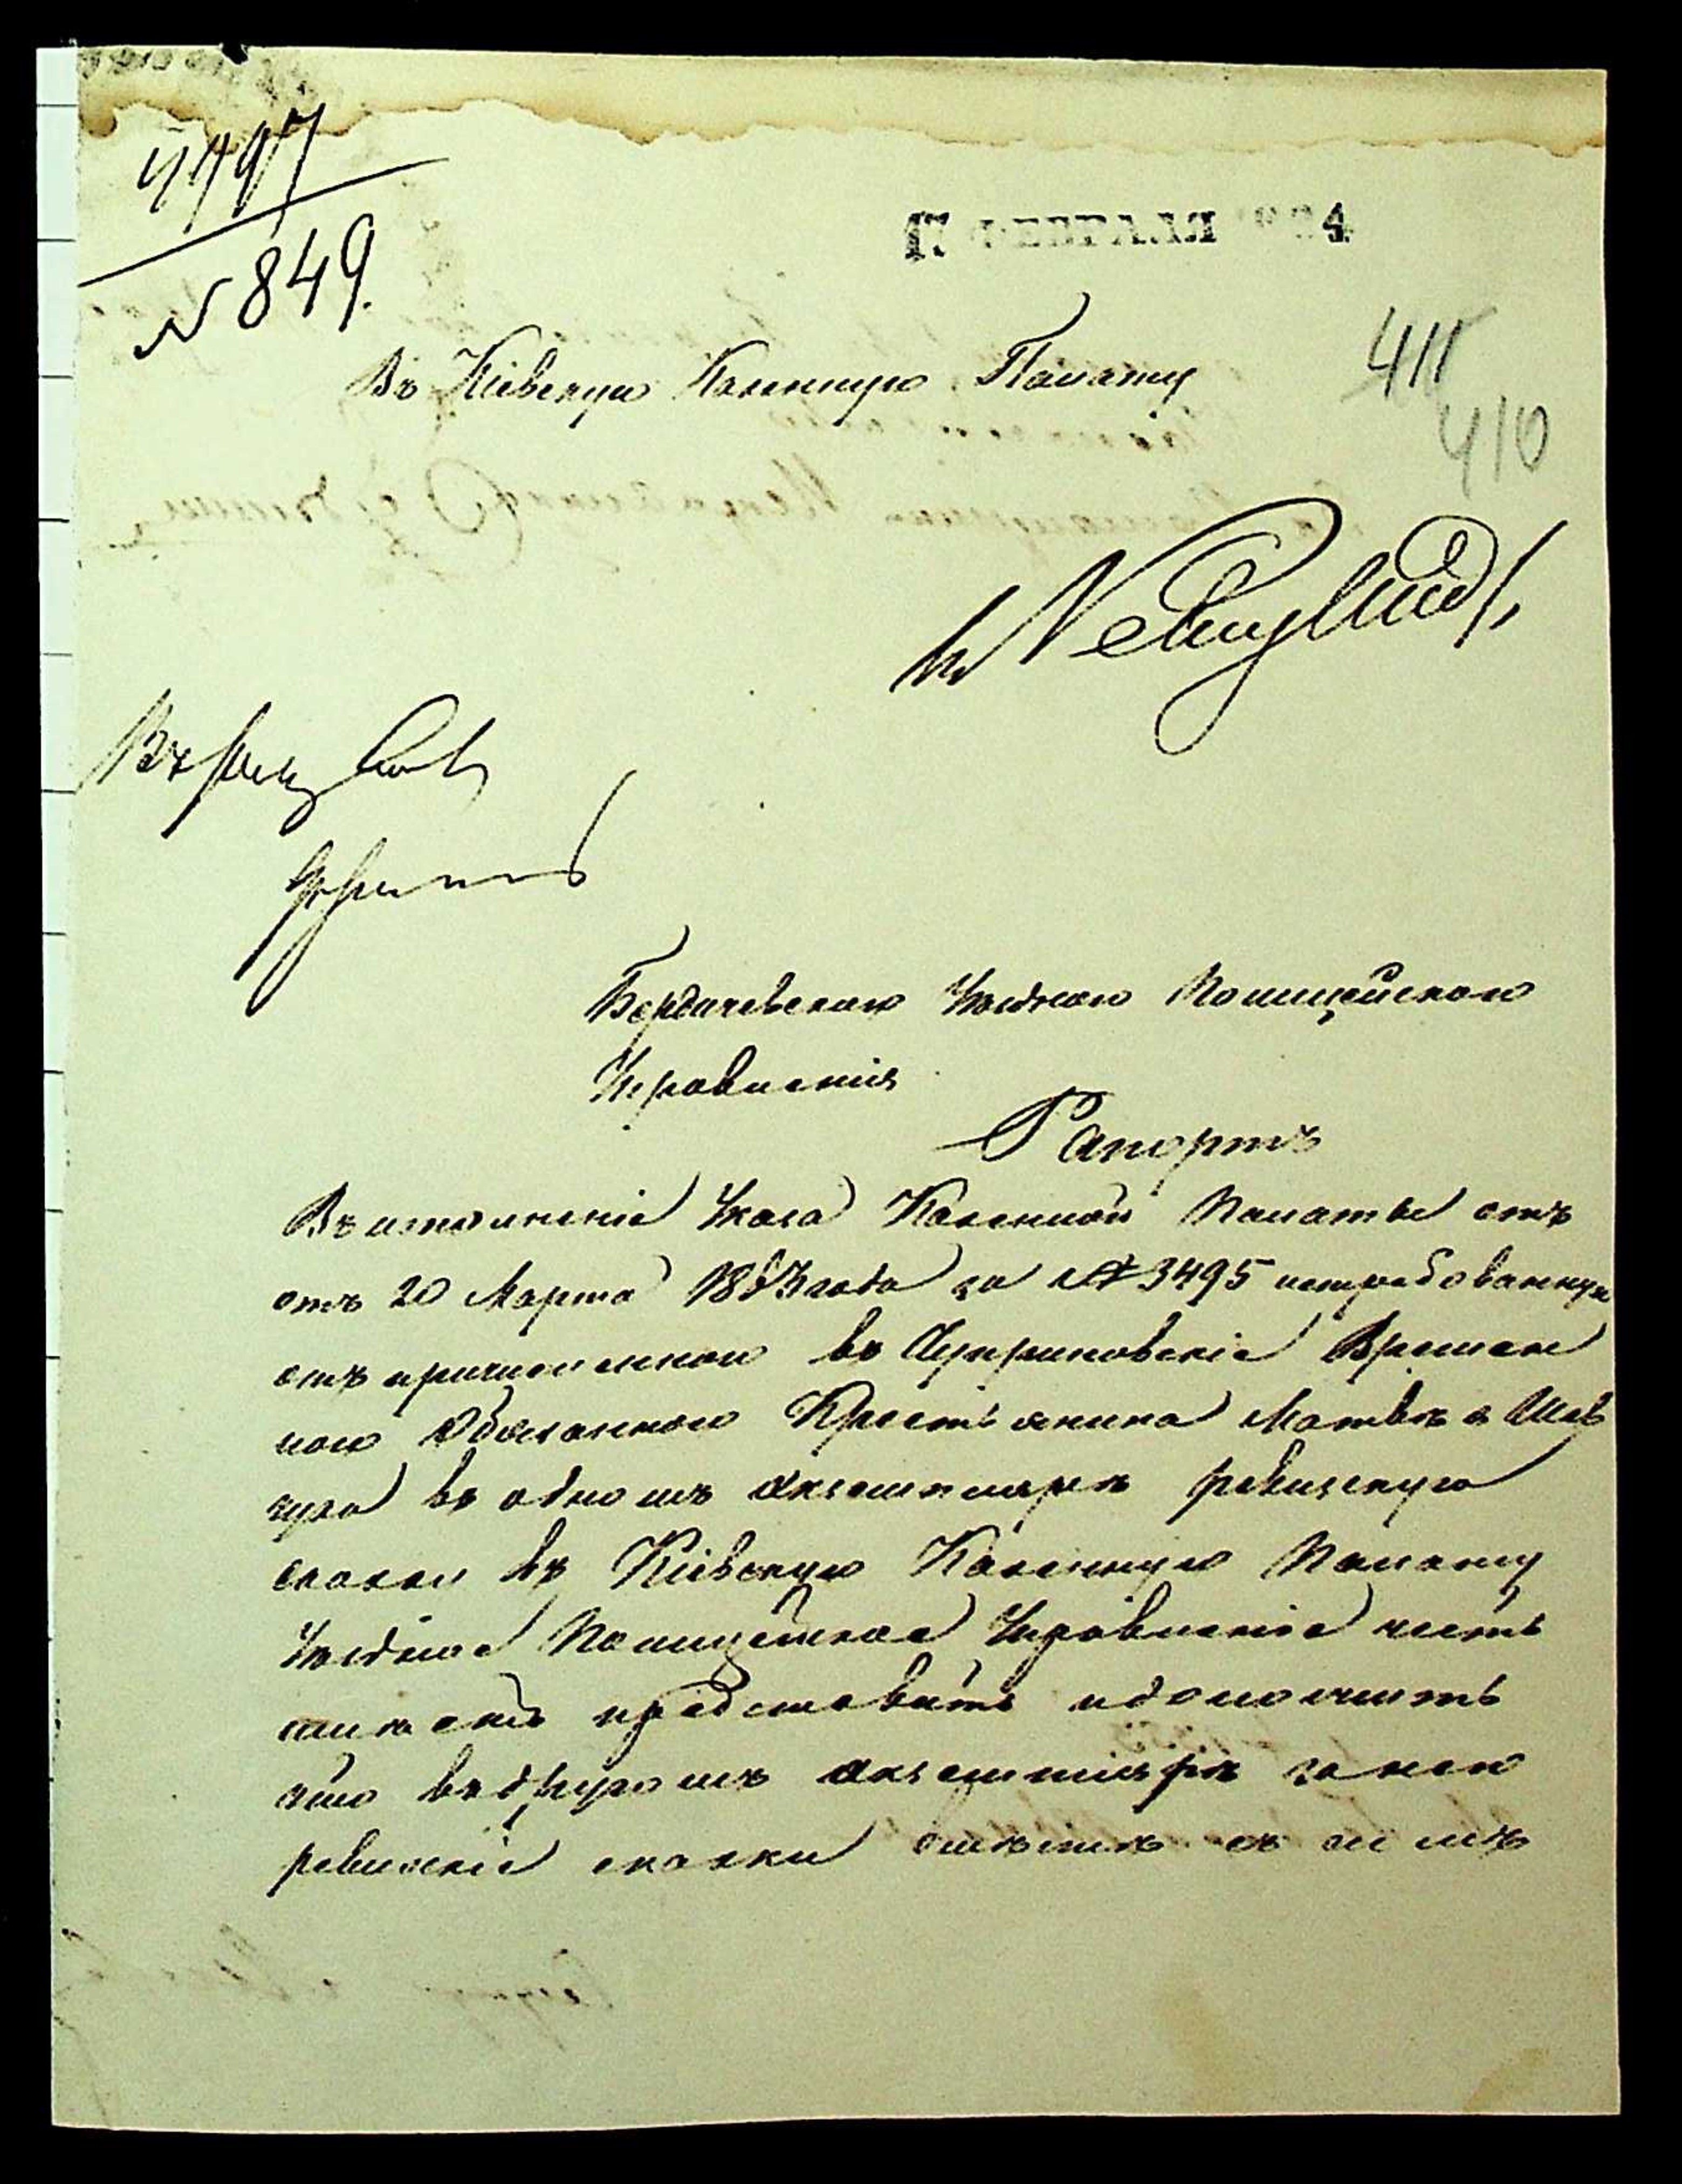 4497
№ 849.
17 ФЕВРАЛЯ 1864
Въ Кіевскую Казенную Палату
411
410
Бердичевскаго Уѣзднаго Полицейскаго
Управленія
Рапортъ
Въ исполненіе Указа Казенной Палаты отъ
отъ 20 Марта 1863 года за № 3495 истребованную
отъ причисленнаго въ Временно
наго Обязаннаго Крестьянина Матвѣя Шев
чука въ одномъ экземплярѣ ревизскую
сказки въ Кіевскую Казенную Палату
Уѣздное Полицейское Управленіе честь
имѣетъ представить и доложить
что въ другомъ экземплярѣ на него
ревизскіе сказки вмѣстѣ съ симъ